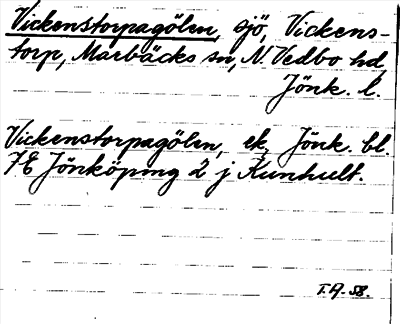 Vickenstorpagölen, sjö, Vickens-
torp, Marbäcks sn, N. Vedbo hd,
Jönk. l.
Vickenstorpagölen, ek. Jönk. bl.
7E Jönköping 2 j Kunhult.
T.A. 58.